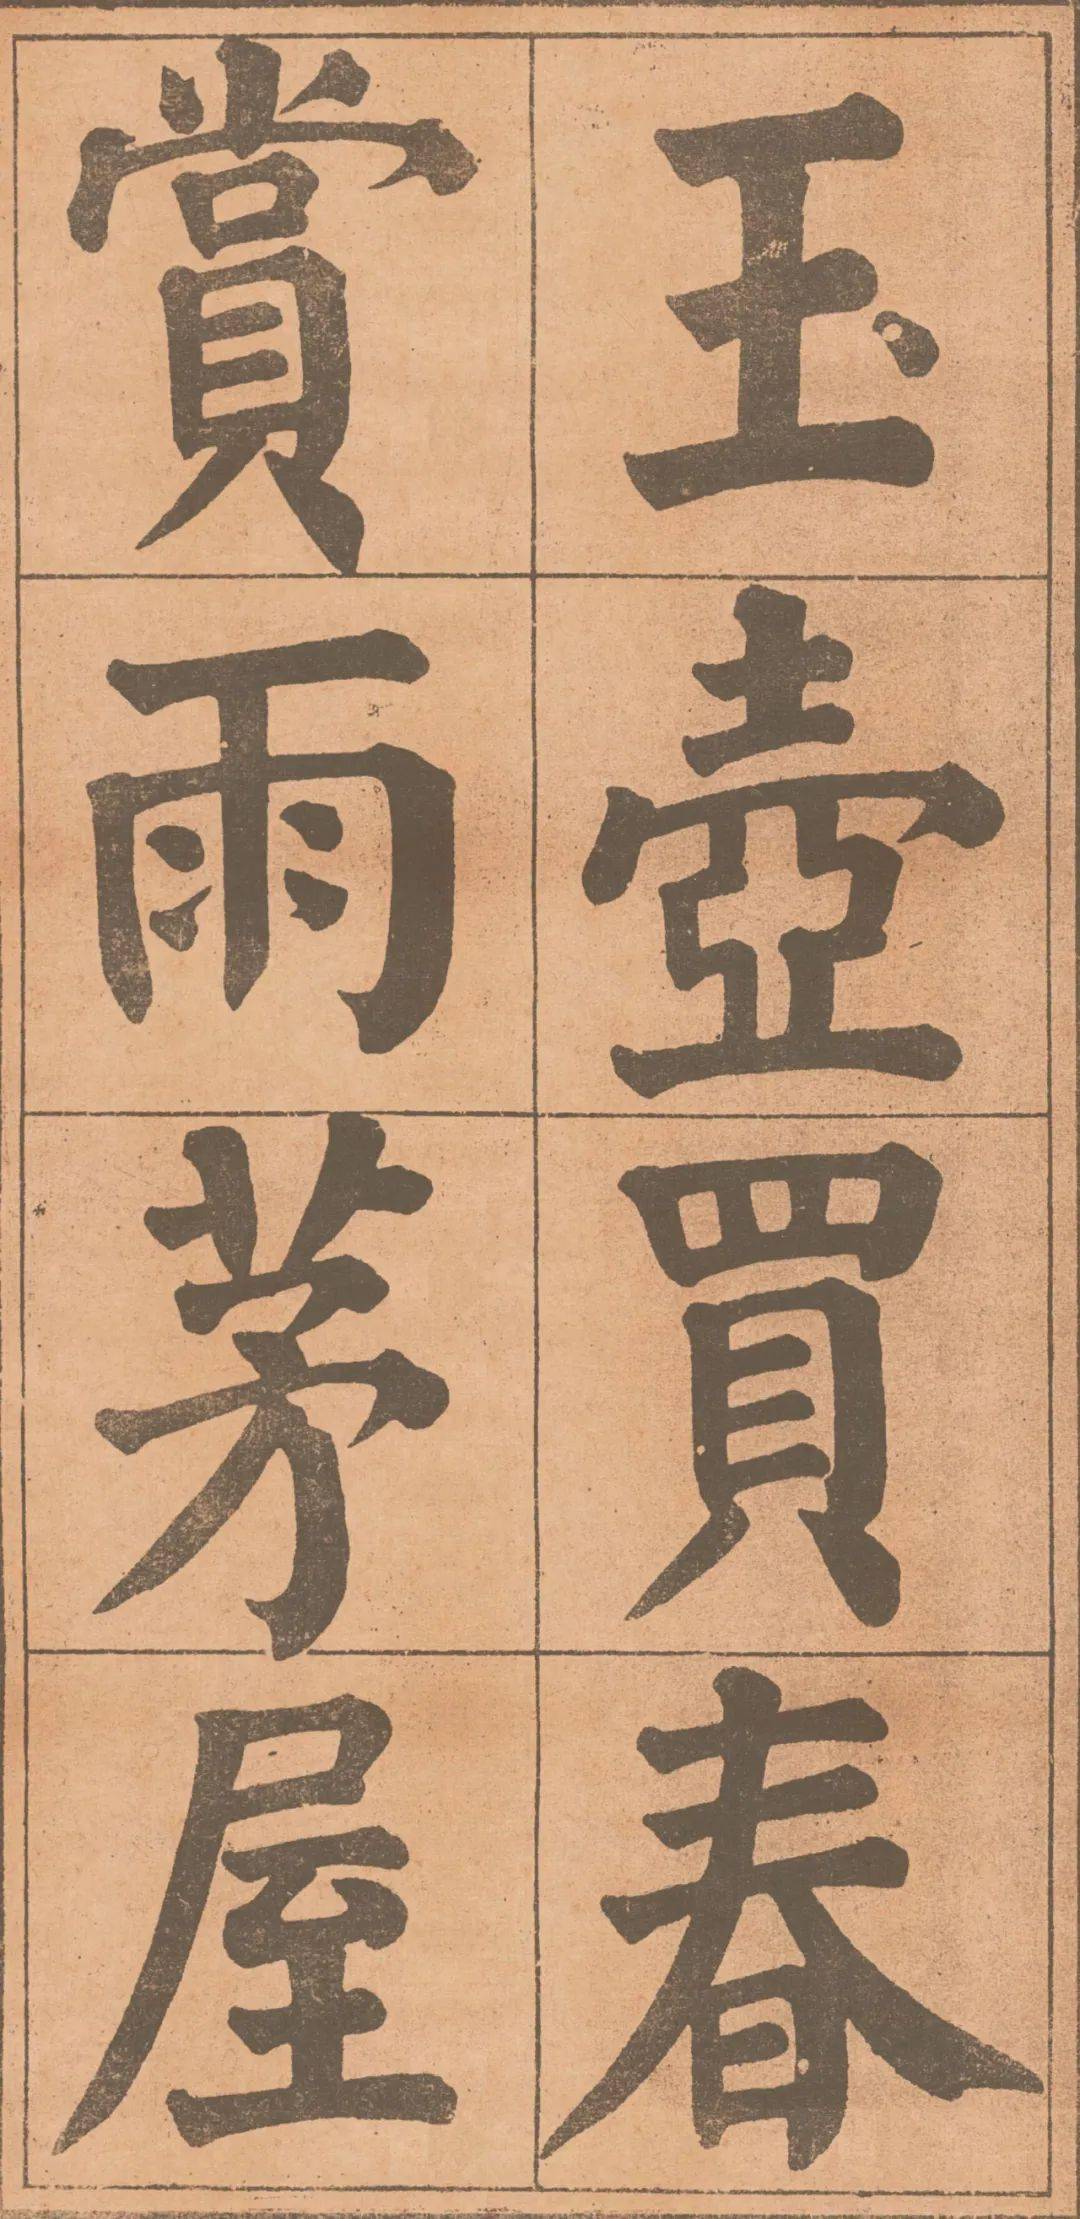 玉壺買春
賞雨茅屋